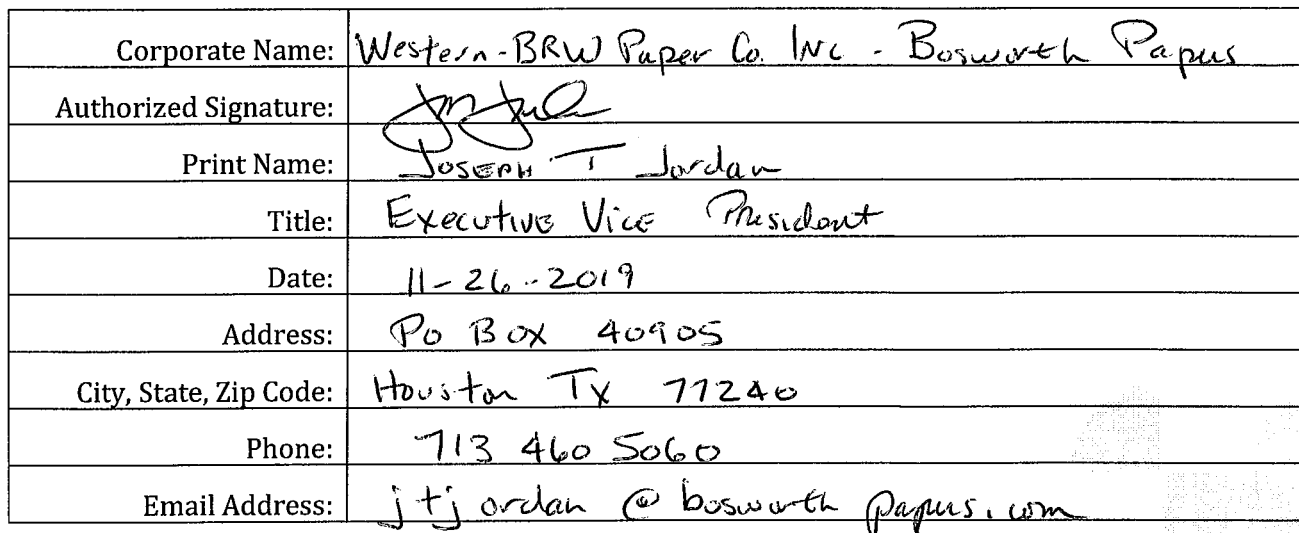 Corporate Name: Western-BRW Paper Co. Inc - Bosworth Papers
Authorized Signature:
Print Name: Joseph T Jordan
Title: Executive Vice President
Date: 11-26-2019
Address: Po Box 40905
City, State, Zip Code: Houston Tx 77240
Phone: 713 460 5060
Email Address: jtjordan@bosworthpapers.com